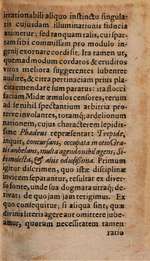 irrationabilis aliquo instinctu singula-
ris cujusdam illuminationis fiducia
animetur; sed ratione talis, cui spar-
sam sibi commissam pro modulo in-
genij exonare cordi sit. Ita tamen ut,
quemadmodum cordatos & eruditos
viros meliora suggerentes lubenter
audire, & citra pertinaciam priùs pla-
cita emendare sum paratus: ita flocci
faciam Midæ æmulos censores, rerum
ad se nihil spectantium arbitros pro-
prios invasantes, totamque ardelionum
nationem, characterismum lepidis-
simè Phædrus repræsentat: Trepidè,
inquit, concursans, occupata in otio Gra-
tis anhelans, multa agendo nihil agens, Si-
bi molesta, & aliis odiosissima. Primum
igitur discrimen, quo istæ disciplinæ
invicem separantur, resultat ex diver-
so fonte, unde sua dogmata utraque de-
rivat; de quo jam jam tetigimus. Ex
quo consequitur, si aliqua sint, quæ
divinis literis agere aut omittere jube-
amur, quarum necessitatem tamen
ratio